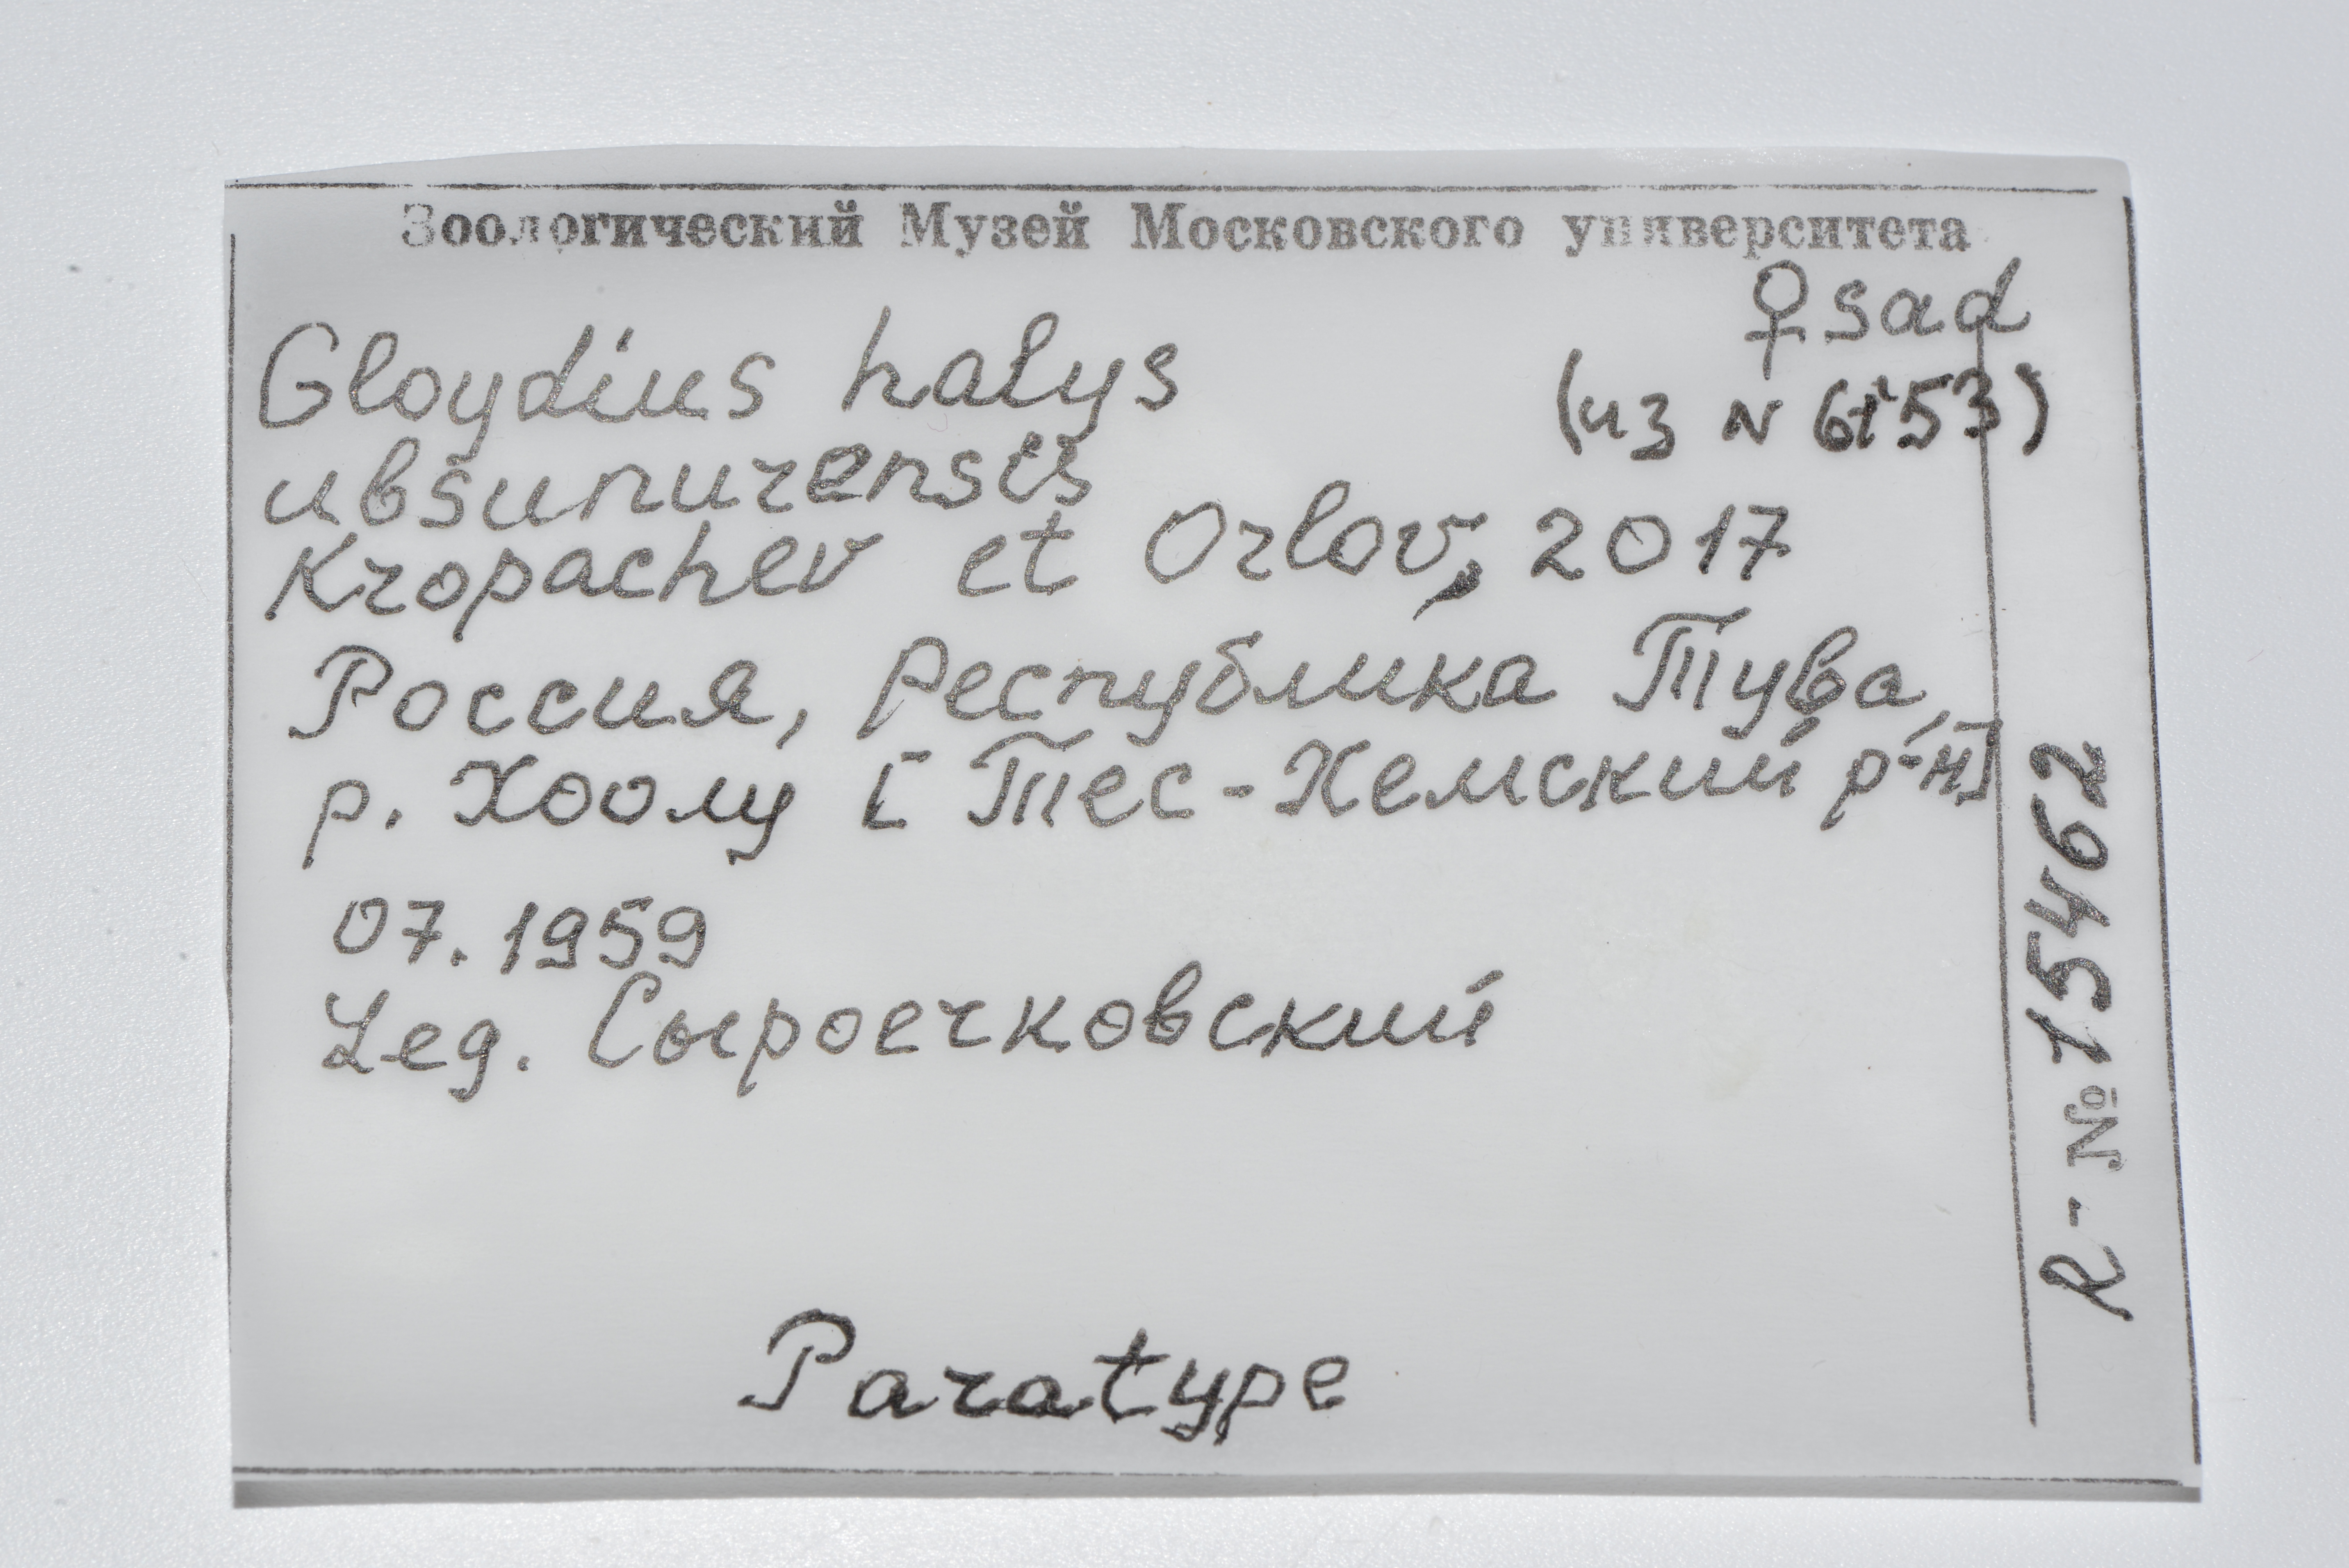 Зоологический Музей Московского университета
♀ sad
Gloydius halys
(из N 6153)
ubsunurensis
Kropachev et Orlov, 2017
Россия, республика Тува,
р. Хоолу [Тес-Хемский р-н]
07.1959
Leg. Сыроечковский
Paratype
R-№ 15462